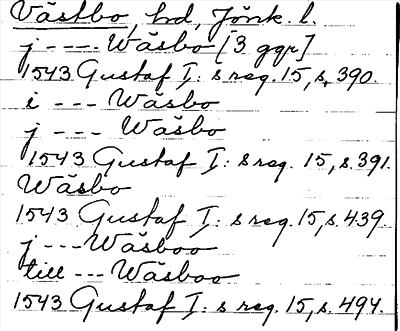 Västbo, hd, Jönk. l.
j --- Wäsbo [3 ggr]
1543 Gustaf I: s reg. 15, s. 390.
i --- Wäsbo
j --- Wäsbo
1543 Gustaf I: s reg. 15, s. 391.
Wäsbo
1543 Gustaf I: s reg. 15, s. 439
j --- Wäsboo
till --- Wäsboo
1543 Gustaf I: s reg. 15, s. 494.